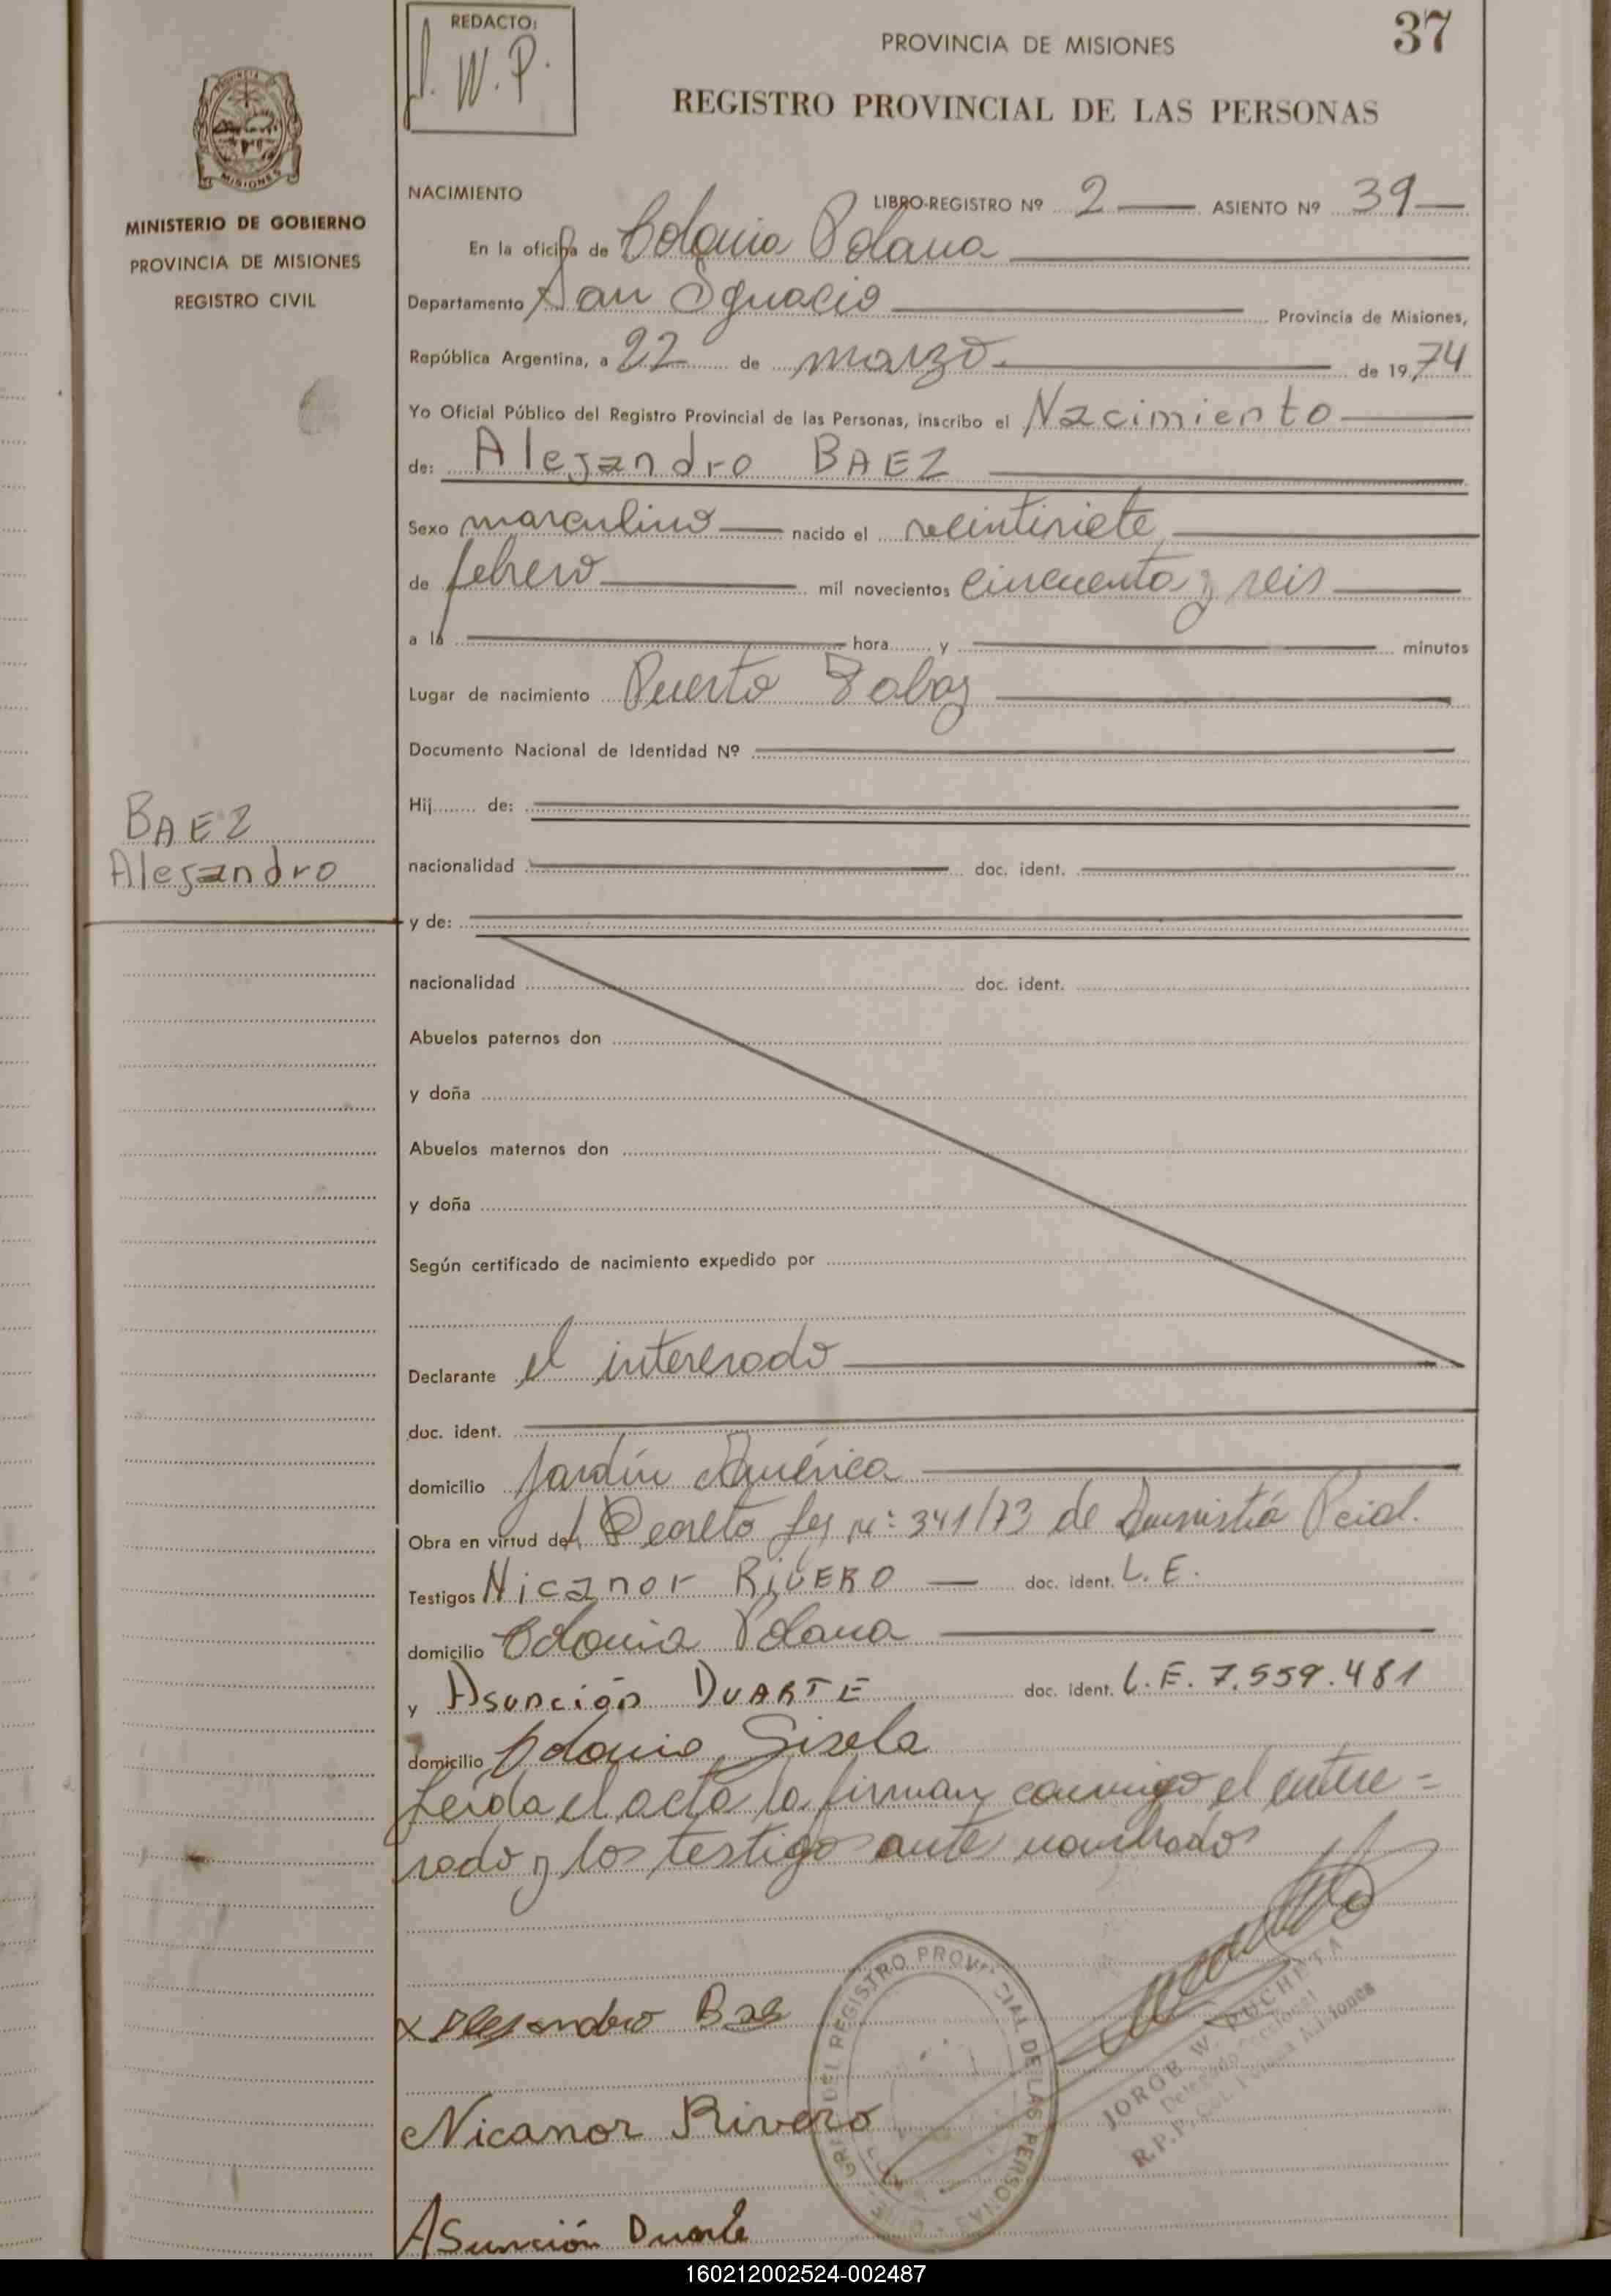 REDACTO:
J. W. P.
PROVINCIA DE MISIONES
37
REGISTRO PROVINCIAL DE LAS PERSONAS
MISIONES
MINISTERIO DE GOBIERNO
PROVINCIA DE MISIONES
REGISTRO CIVIL
NACIMIENTO LIBRO-REGISTRO Nº 2 ASIENTO Nº 39
En la oficina de Colonia Polana
Departamento San Ignacio Provincia de Misiones,
República Argentina, a 22 de marzo de 1974
Yo Oficial Público del Registro Provincial de las Personas, inscribo el Nacimiento
de: Alejandro BAEZ
Sexo masculino nacido el veintisiete
de febrero mil novecientos cincuenta y seis
a la hora y minutos
Lugar de nacimiento Puerto
Documento Nacional de Identidad Nº
Hij de:
BAEZ
Alejandro
nacionalidad doc. ident.
y de:
nacionalidad doc. ident.
Abuelos paternos don
y doña
Abuelos maternos don
y doña
Según certificado de nacimiento expedido por
Declarante el interesado
doc. ident.
domicilio Jardín América
Obra en virtud del Decreto Ley Nº 341/73 de Amnistía Pcial.
Testigos Nicanor RIVERO doc. ident. L. E.
domicilio Colonia Polana
y Asunción DUARTE doc. ident. L. E. 7.559.481
domicilio Colonia Gisela
Leída el acta la firman conmigo el intere=
sado y los testigos ante nombrados
x Alejandro Baes
Nicanor Rivero
Asunción Duarte
DEL REGISTRO PROVINCIAL DE LAS PERSONAS
JORGE W. PUCHETA
Delegado Seccional
R.P.P. Col. Polana Misiones
160212002524-002487